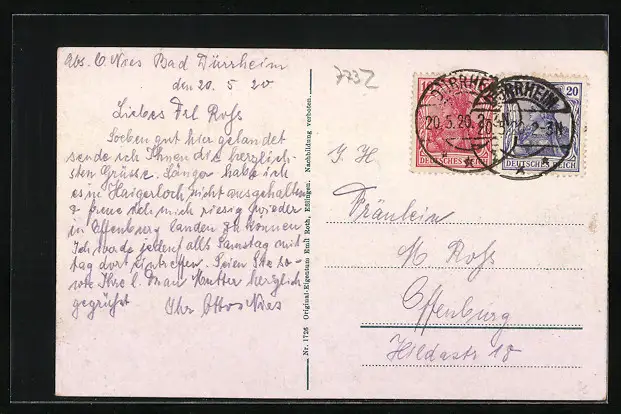 Abs. O Nies Bad Dürrheim
den 20. 5. 20
Liebes Frl Roß
Soeben gut hier gelandet
sende ich Ihnen die herzlich-
sten Grüsse. Länger habe ich
es in Haigerloch nicht ausgehalten
& freue ich mich riesig wieder
in Offenburg landen zu können
Ich werde jedenfalls Samstag mit-
tag dort eintreffen. Seien Sie so-
wie Ihre l. Frau Mutter herzlich
gegrüßt Ihr Otto Nies
Nr. 1726 Original-Eigentum Emil Roth, Eßlingen. Nachbildung verboten.
773Z
DÜRRHEIM
20.5.20. 2-3N
DEUTSCHES REICH
20
DÜRRHEIM
2-3N
DEUTSCHES REICH
I. H.
Fräulein
M Roß
Offenburg
Hildastr 18